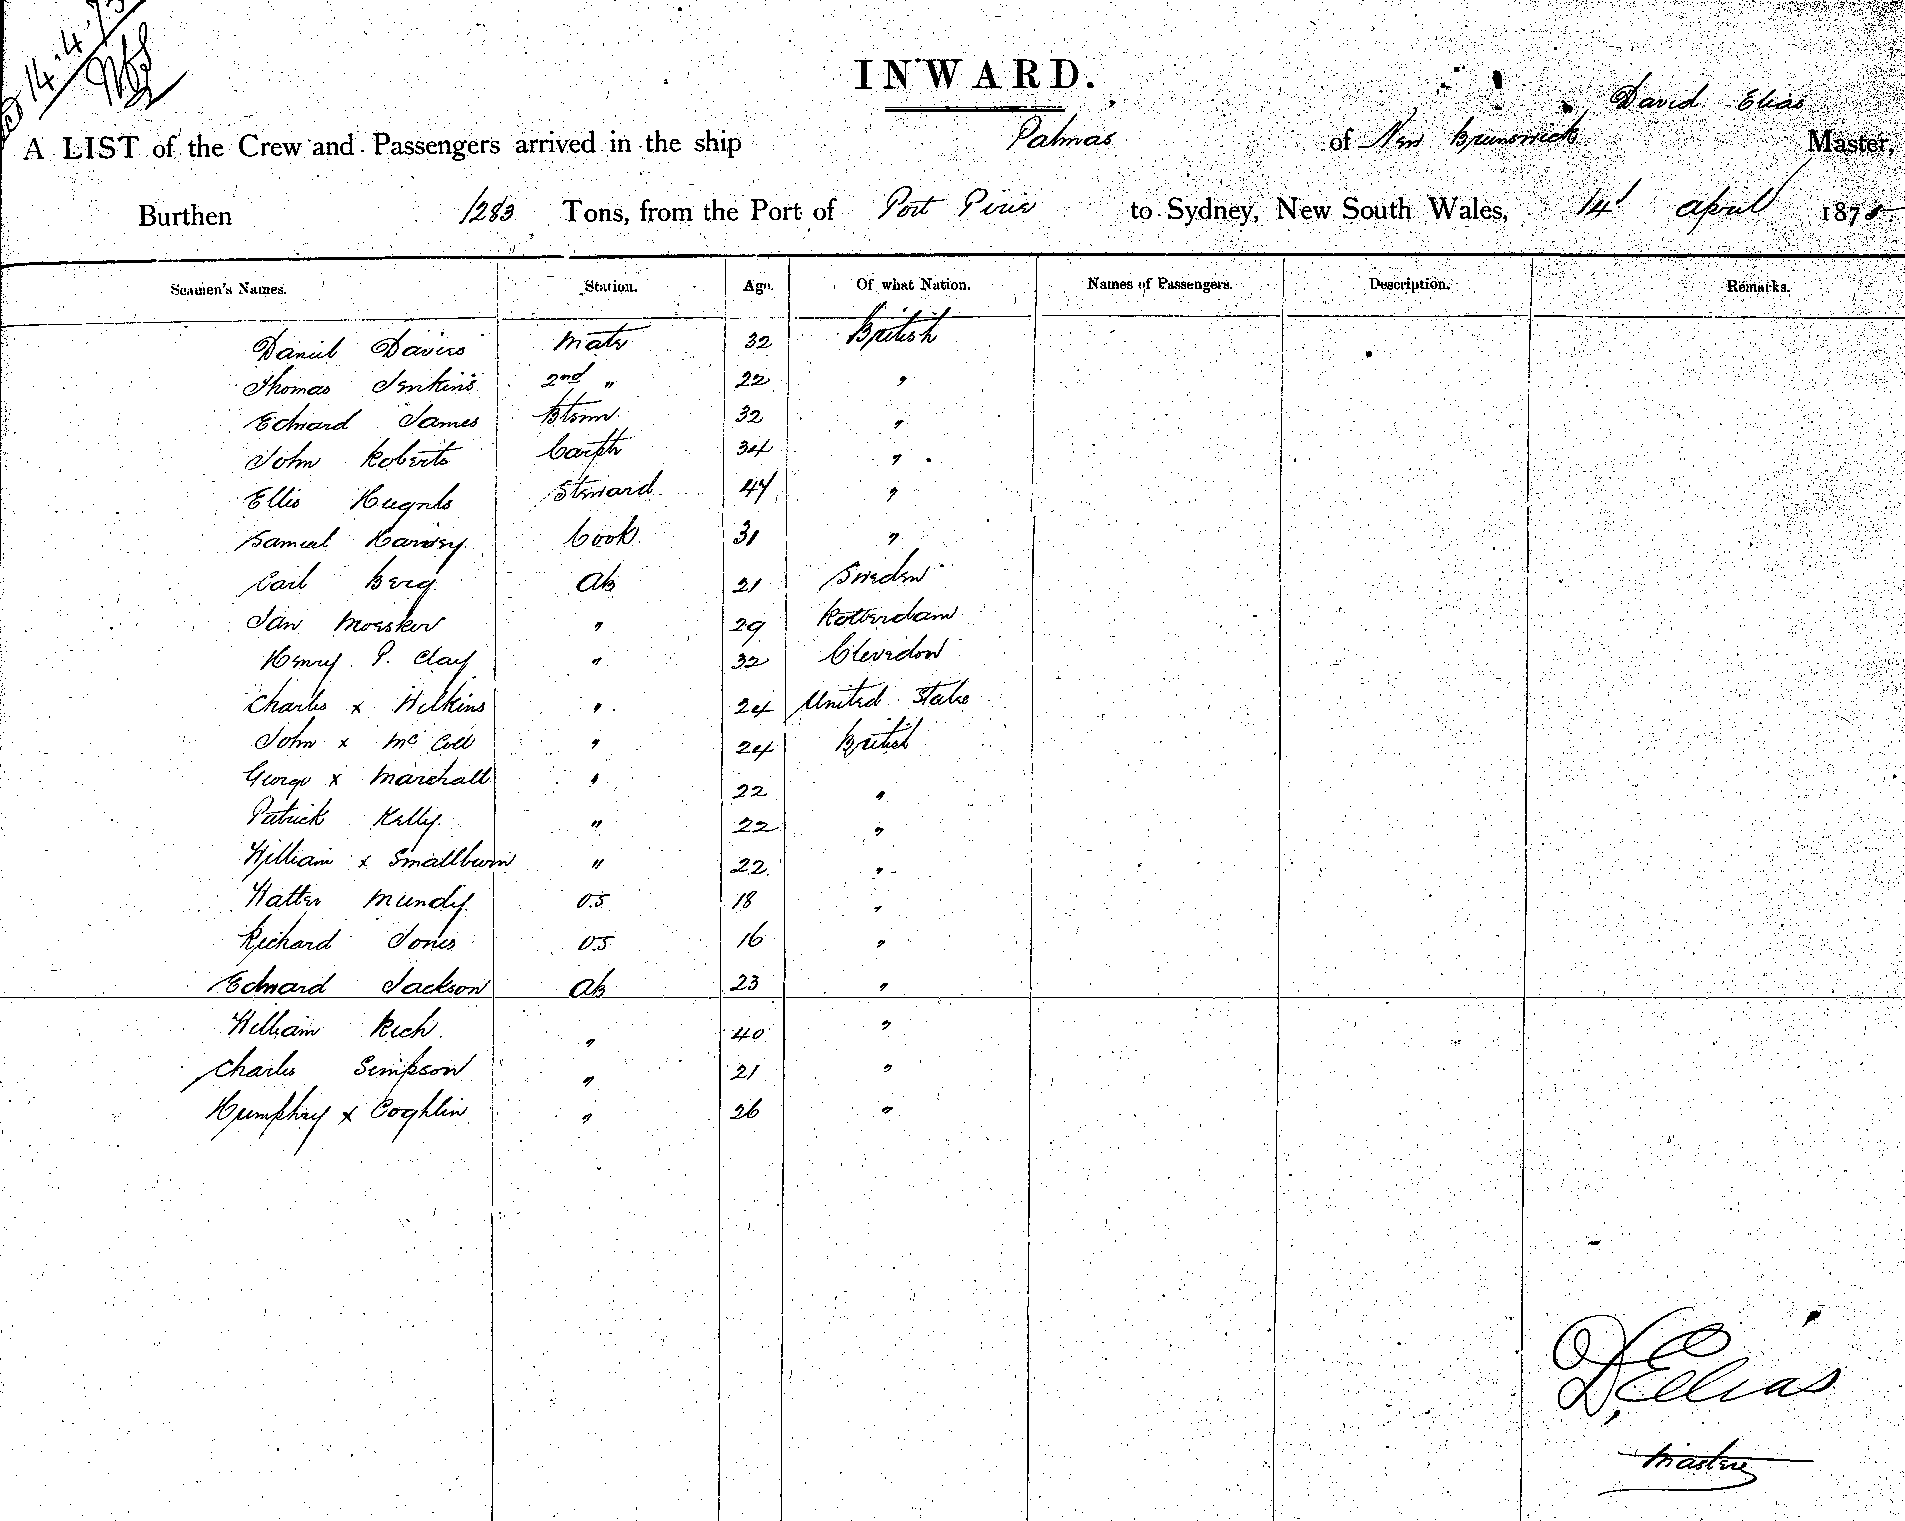 14.4.75
INWARD.
David Elias
A LIST of the Crew and Passengers arrived in the ship Palmas of New Brunswick Master,
Burthen 1283 Tons, from the Port of Port Pirie to Sydney, New South Wales, 14 April 1875
Seamen's Names. Station. Age. Of what Nation. Names of Passengers. Description. Remarks.
Daniel Davies Mate 32 British
Thomas Jenkins 2nd " 22 "
Edward James Btsmn 32 "
John Roberts Carptr 34 "
Ellis Hughes Steward 47 "
Samuel Harvey Cook 31 "
Carl Berg AB 21 Sweden
Jan Moesker " 29 Rotterdam
Henry P. Clay " 32 Clevedon
Charles x Wilkins " 24 United States
John x McColl " 24 British
George x Marshall " 22 "
Patrick Kelly " 22 "
William x Smallburn " 22 "
Walter Mundy OS 18 "
Richard Jones OS 16 "
Edward Jackson AB 23 "
William Rich " 40 "
Charles Simpson " 21 "
Humphry x Coghlin " 26 "
D. Elias
Master